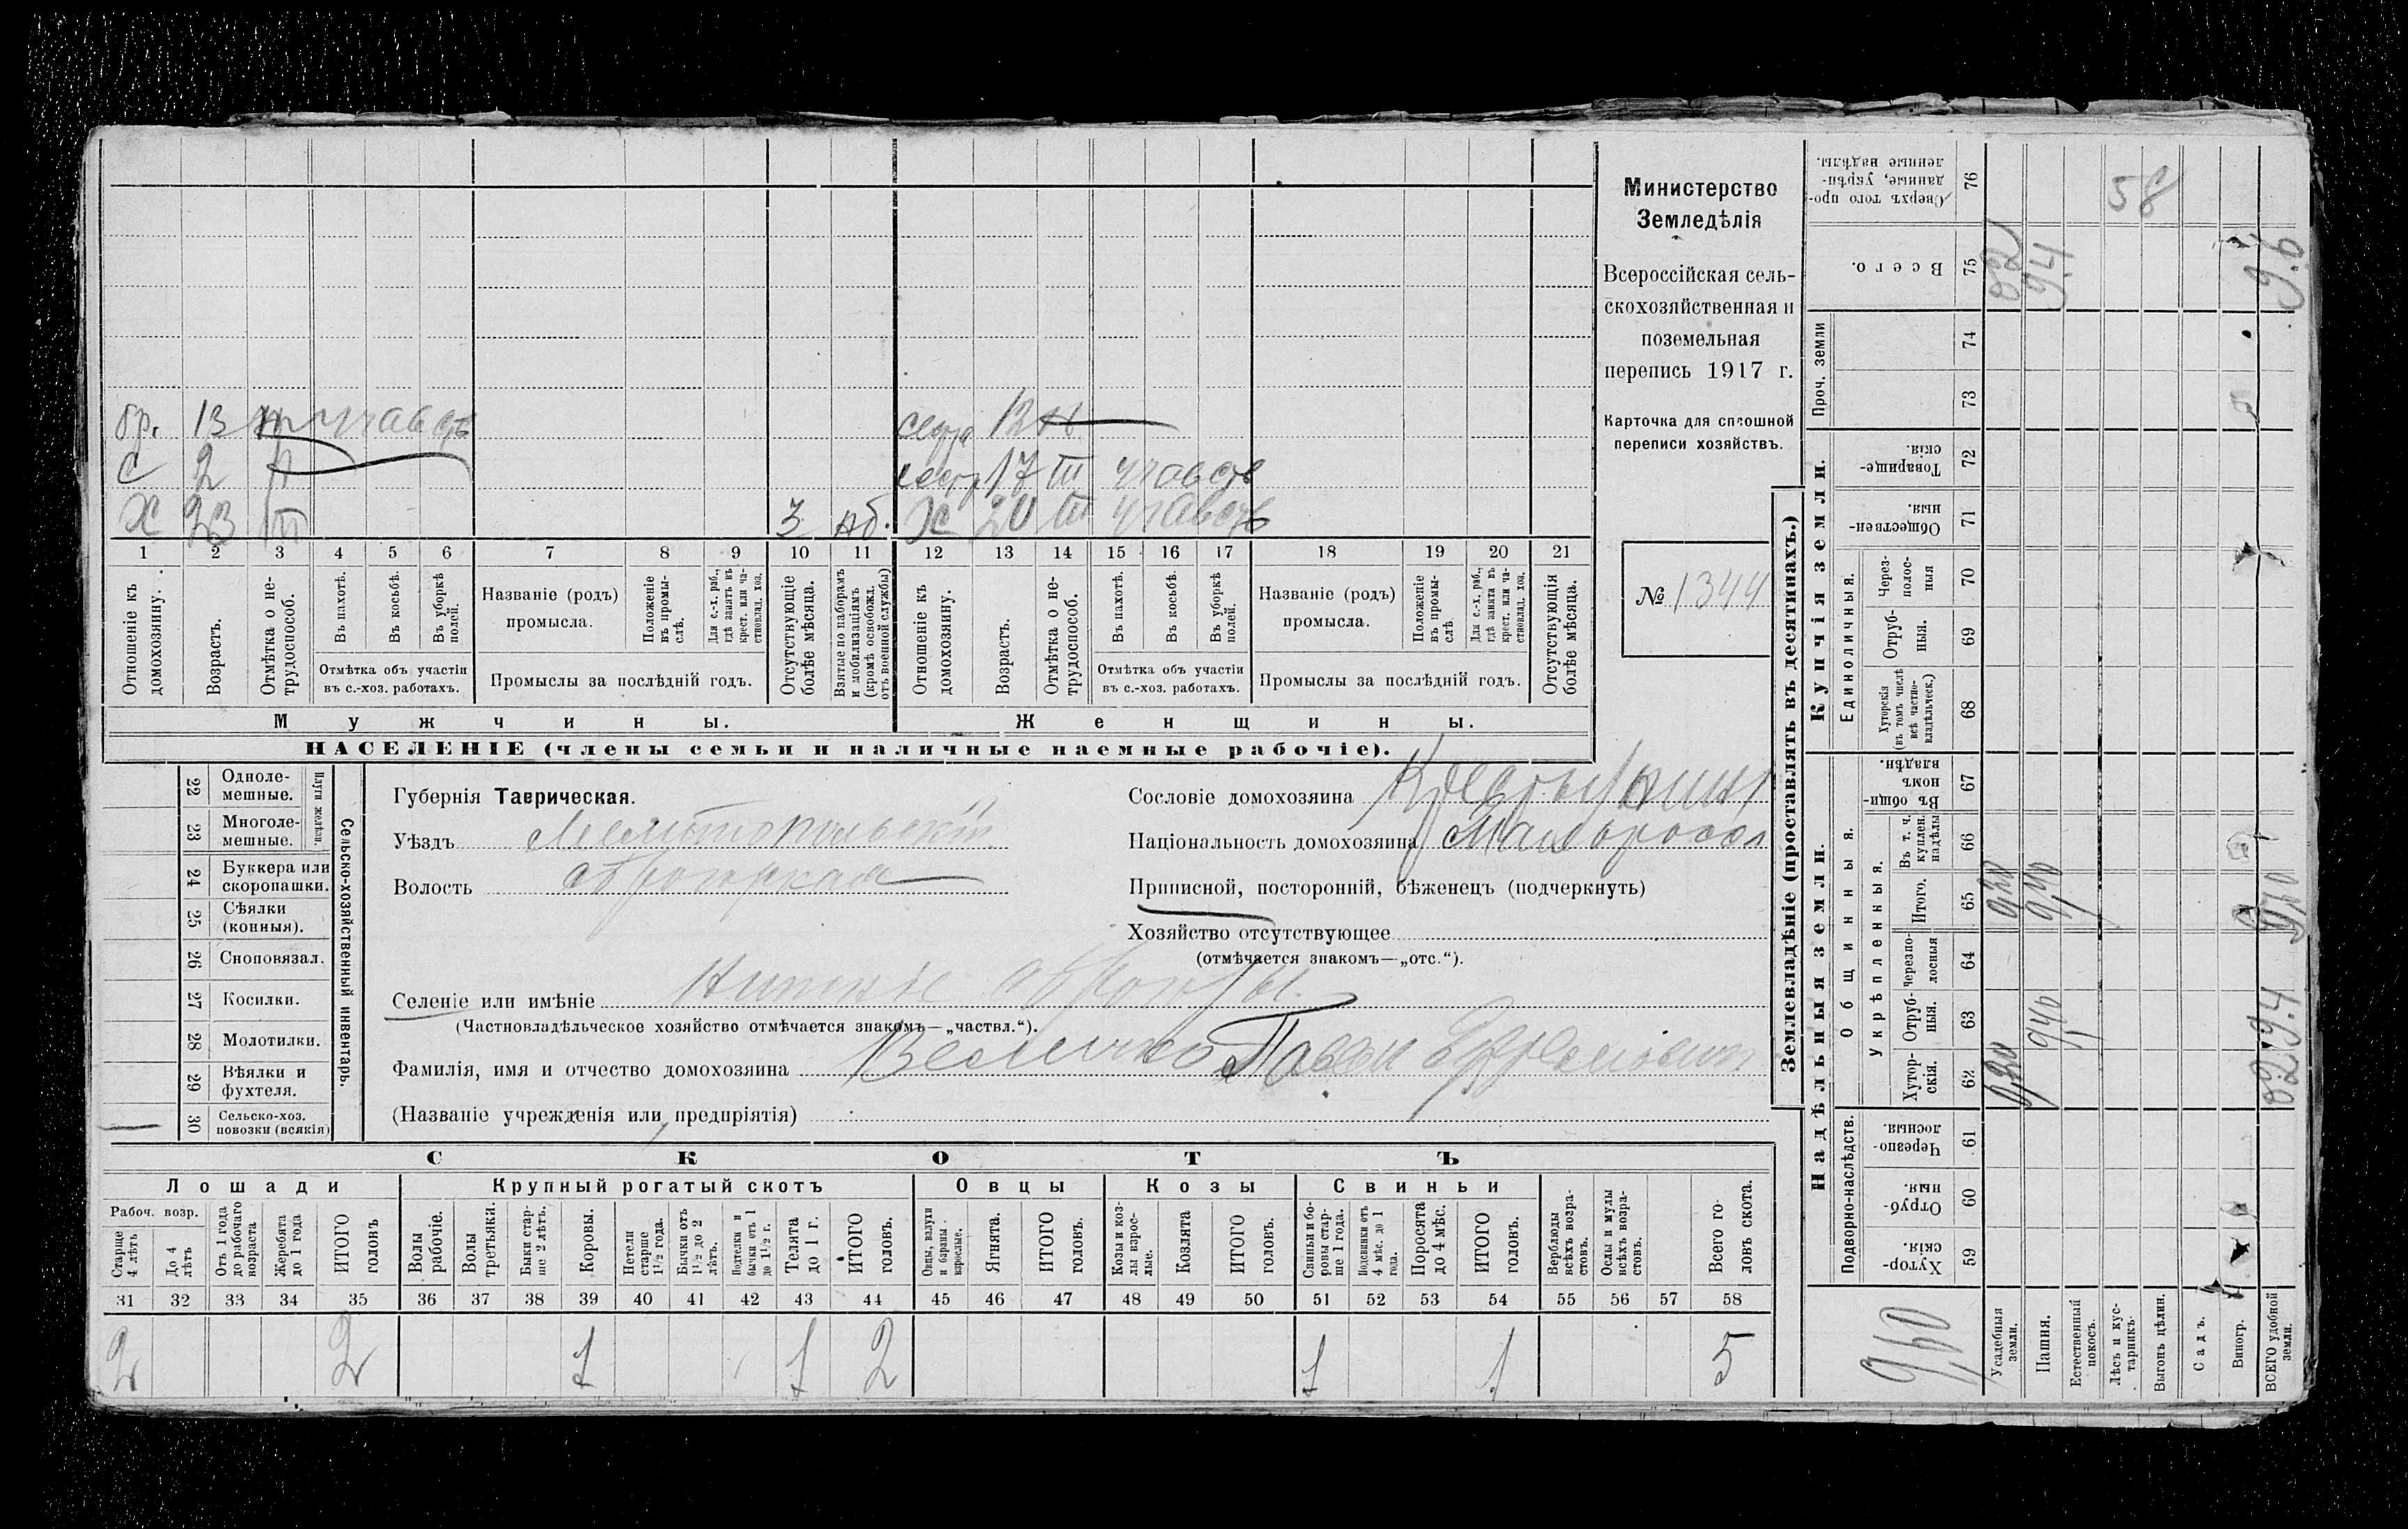 бр. 13
с 2
Х 23 3 нб.
сестра 12
сестр 17 участв
Х 20 участв
1 2 3 4 5 6 7 8 9 10 11 12 13 14 15 16 17 18 19 20 21
Отношеніе къ домохозяину.
Возрастъ.
Отмѣтка о нетрудоспособ.
Въ пахотѣ.
Въ косьбѣ.
Въ уборкѣ полей.
Отмѣтка объ участіи въ с.-хоз. работахъ.
Названіе (родъ) промысла.
Положеніе въ промыслѣ.
Для с.-х. раб., гдѣ занятъ въ крест. или частновлад. хоз.
Промыслы за послѣдній годъ.
Отсутствующіе болѣе мѣсяца.
Взятые по наборамъ и мобилизаціямъ (кромѣ освобожд. отъ военной службы)
Отношеніе къ домохозяину.
Возрастъ.
Отмѣтка о нетрудоспособ.
Въ пахотѣ.
Въ косьбѣ.
Въ уборкѣ полей.
Отмѣтка объ участіи въ с.-хоз. работахъ.
Названіе (родъ) промысла.
Положеніе въ промыслѣ.
Для с.-х. раб., гдѣ занята въ крест. или частновлад. хоз.
Промыслы за послѣдній годъ.
Отсутствующія болѣе мѣсяца.
Мужчины.
Женщины.
НАСЕЛЕНІЕ (члены семьи и наличные наемные рабочіе).
Министерство
Земледѣлія
Всероссійская сель-
скохозяйственная и
поземельная
перепись 1917 г.
Карточка для сплошной
переписи хозяйствъ.
№ 1344
Сельско-хозяйственный инвентарь.
Плуги желѣзн.
22 Одноле-
мешные.
23 Многоле-
мешные.
24 Буккера или
скоропашки.
25 Сѣялки
(конныя).
26 Сноповязал.
27 Косилки.
28 Молотилки.
29 Вѣялки и
фухтеля.
30 Сельско-хоз.
повозки (всякія)
Губернія Таврическая.
Уѣздъ Мелитопольскій
Волость
Селеніе или имѣніе
(Частновладѣльческое хозяйство отмѣчается знакомъ—„частвл.“).
Фамилія, имя и отчество домохозяина Величко Павел
(Названіе учрежденія или предпріятія)
Сословіе домохозяина Крестьянин
Національность домохозяина Малоросс
Приписной, посторонній, бѣженецъ (подчеркнуть)
Хозяйство отсутствующее
(отмѣчается знакомъ—„отс.“).
СКОТЪ
Лошади
Крупный рогатый скотъ
Овцы
Козы
Свиньи
Рабоч. возр.
Старше 4 лѣтъ
До 4 лѣтъ
Отъ 1 года до рабочаго возраста
Жеребята до 1 года
ИТОГО головъ
Волы рабочіе.
Волы третьяки.
Быки старше 2 лѣтъ.
Коровы.
Нетели старше 1½ года.
Бычки отъ 1½ до 2 лѣтъ.
Подтелки и бычки отъ 1 до 1½ г.
Телята до 1 г.
ИТОГО головъ.
Овцы, валухи и бараны взрослые.
Ягнята.
ИТОГО головъ.
Козы и козлы взрослые.
Козлята
ИТОГО головъ.
Свиньи и боровы старше 1 года.
Подсвинки отъ 4 мѣс. до 1 года.
Поросята до 4 мѣс.
ИТОГО головъ.
Верблюды всѣхъ возрастовъ.
Ослы и мулы всѣхъ возрастовъ.
Всего головъ скота.
31 32 33 34 35 36 37 38 39 40 41 42 43 44 45 46 47 48 49 50 51 52 53 54 55 56 57 58
2 2 1 1 2 1 1 5
Землевладѣніе (проставлять въ десятинахъ.)
Надѣльныя земли.
Купчія земли.
Проч. земли
Подворно-наслѣдств.
Общинныя.
Укрѣпленныя.
Единоличныя.
Сверхъ того проданные, укрѣпленные надѣлы. 76
58
Всего. 75
94 9.6
74
73
Товарищескія 72
Общественныя. 71
Черезполосныя 70
Отрубныя. 69
Хуторскія (въ томъ числѣ всѣ частновладѣльческ.) 68
Въ общиномъ владѣн. 67
Въ т. ч. куплен. надѣлы 66
Итого. 65
Черезполосныя 64
Отрубныя. 63
Хуторскія. 62
Черезполосныя. 61
Отрубныя. 60
Хуторскія. 59
9,60
Усадебныя земли.
Пашня.
Естественный покосъ.
Лѣсъ и кустарникъ.
Выгонъ цѣлин.
Садъ.
Виногр.
ВСЕГО удобной земли.